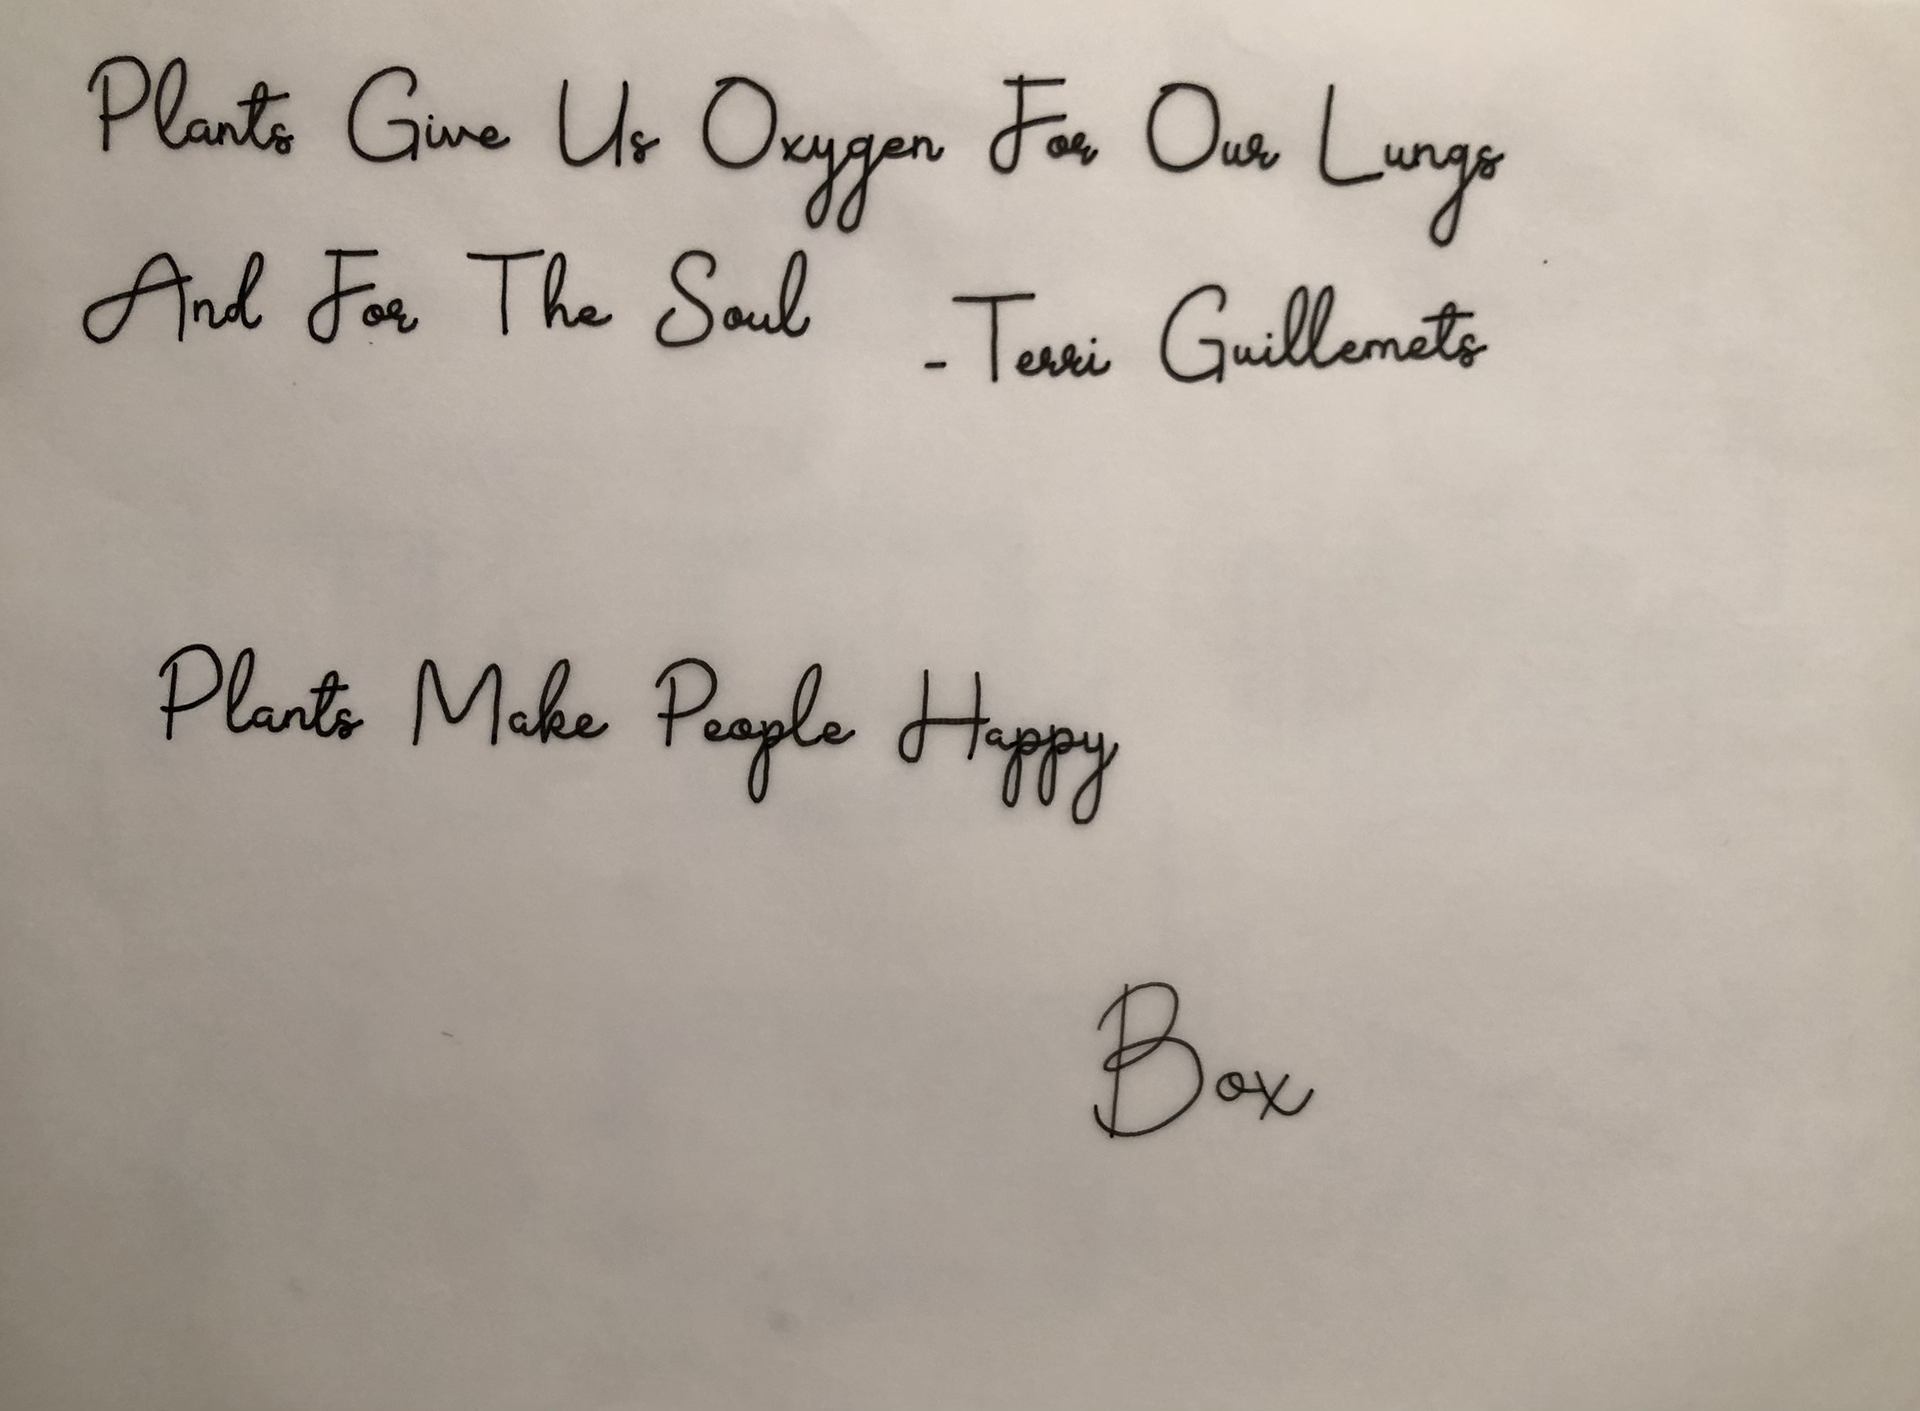 Plants Give Us Oxygen For Our Lungs
And For The Soul -Terri Guillemets
Plants Make People Happy
Box